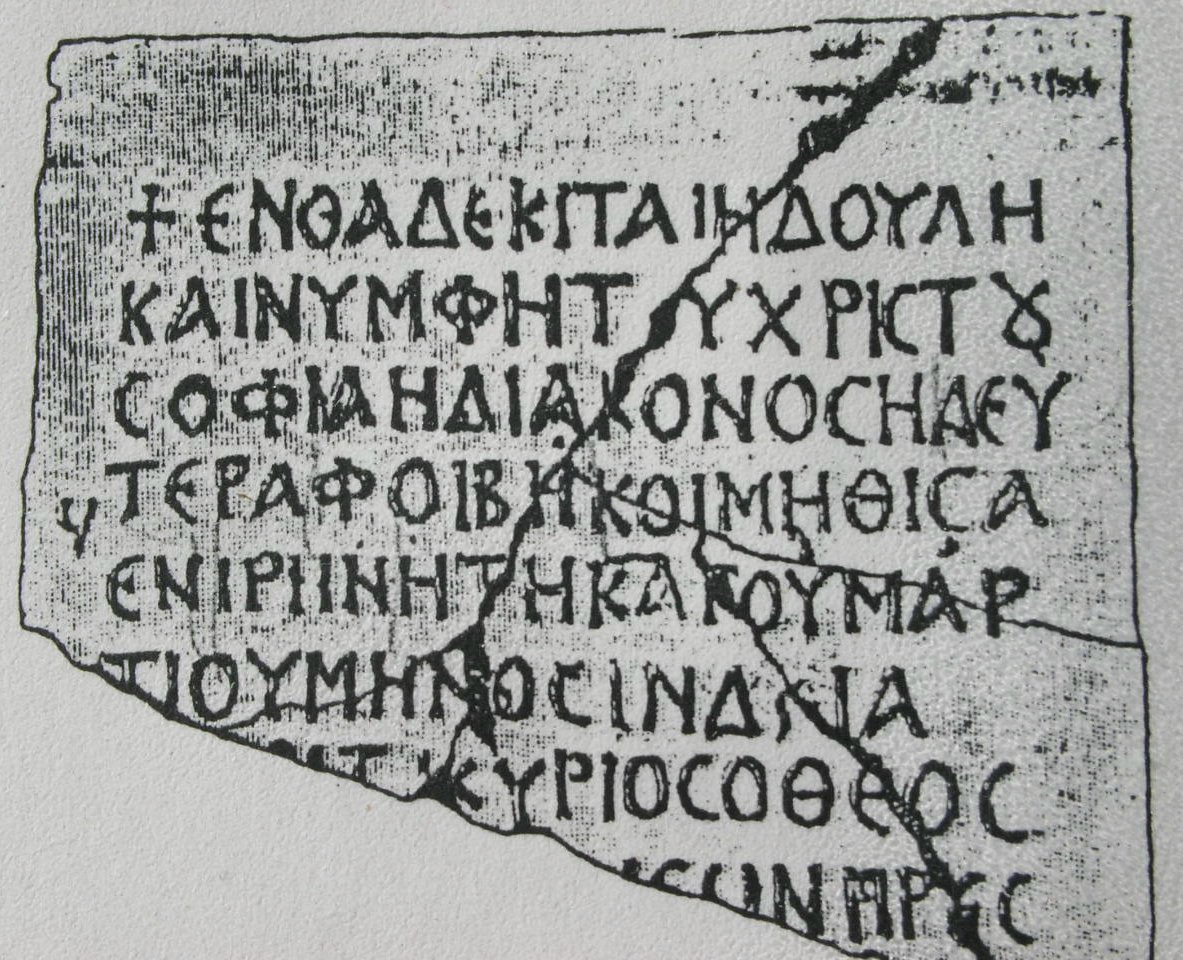 + ΕΝΘΑΔΕΚΙΤΑΙΗΔΟΥΛΗ
ΚΑΙΝΥΜΦΗΤ ΥΧΡΙCΤȢ
CΟΦΙΑΗΔΙΑΚΟΝΟCΗΔΕΥ
ΤΕΡΑΦΟΙΒΗΚΟΙΜΗΘΙCΑ
ΕΝΙΡΗΝΗΤΗΚΑΤΟΥΜΑΡ
ΤΙΟΥΜΗΝΟCΙΝΔΙΑ
ΚΥΡΙΟCΟΘΕΟC
CωΝΠΡΕC